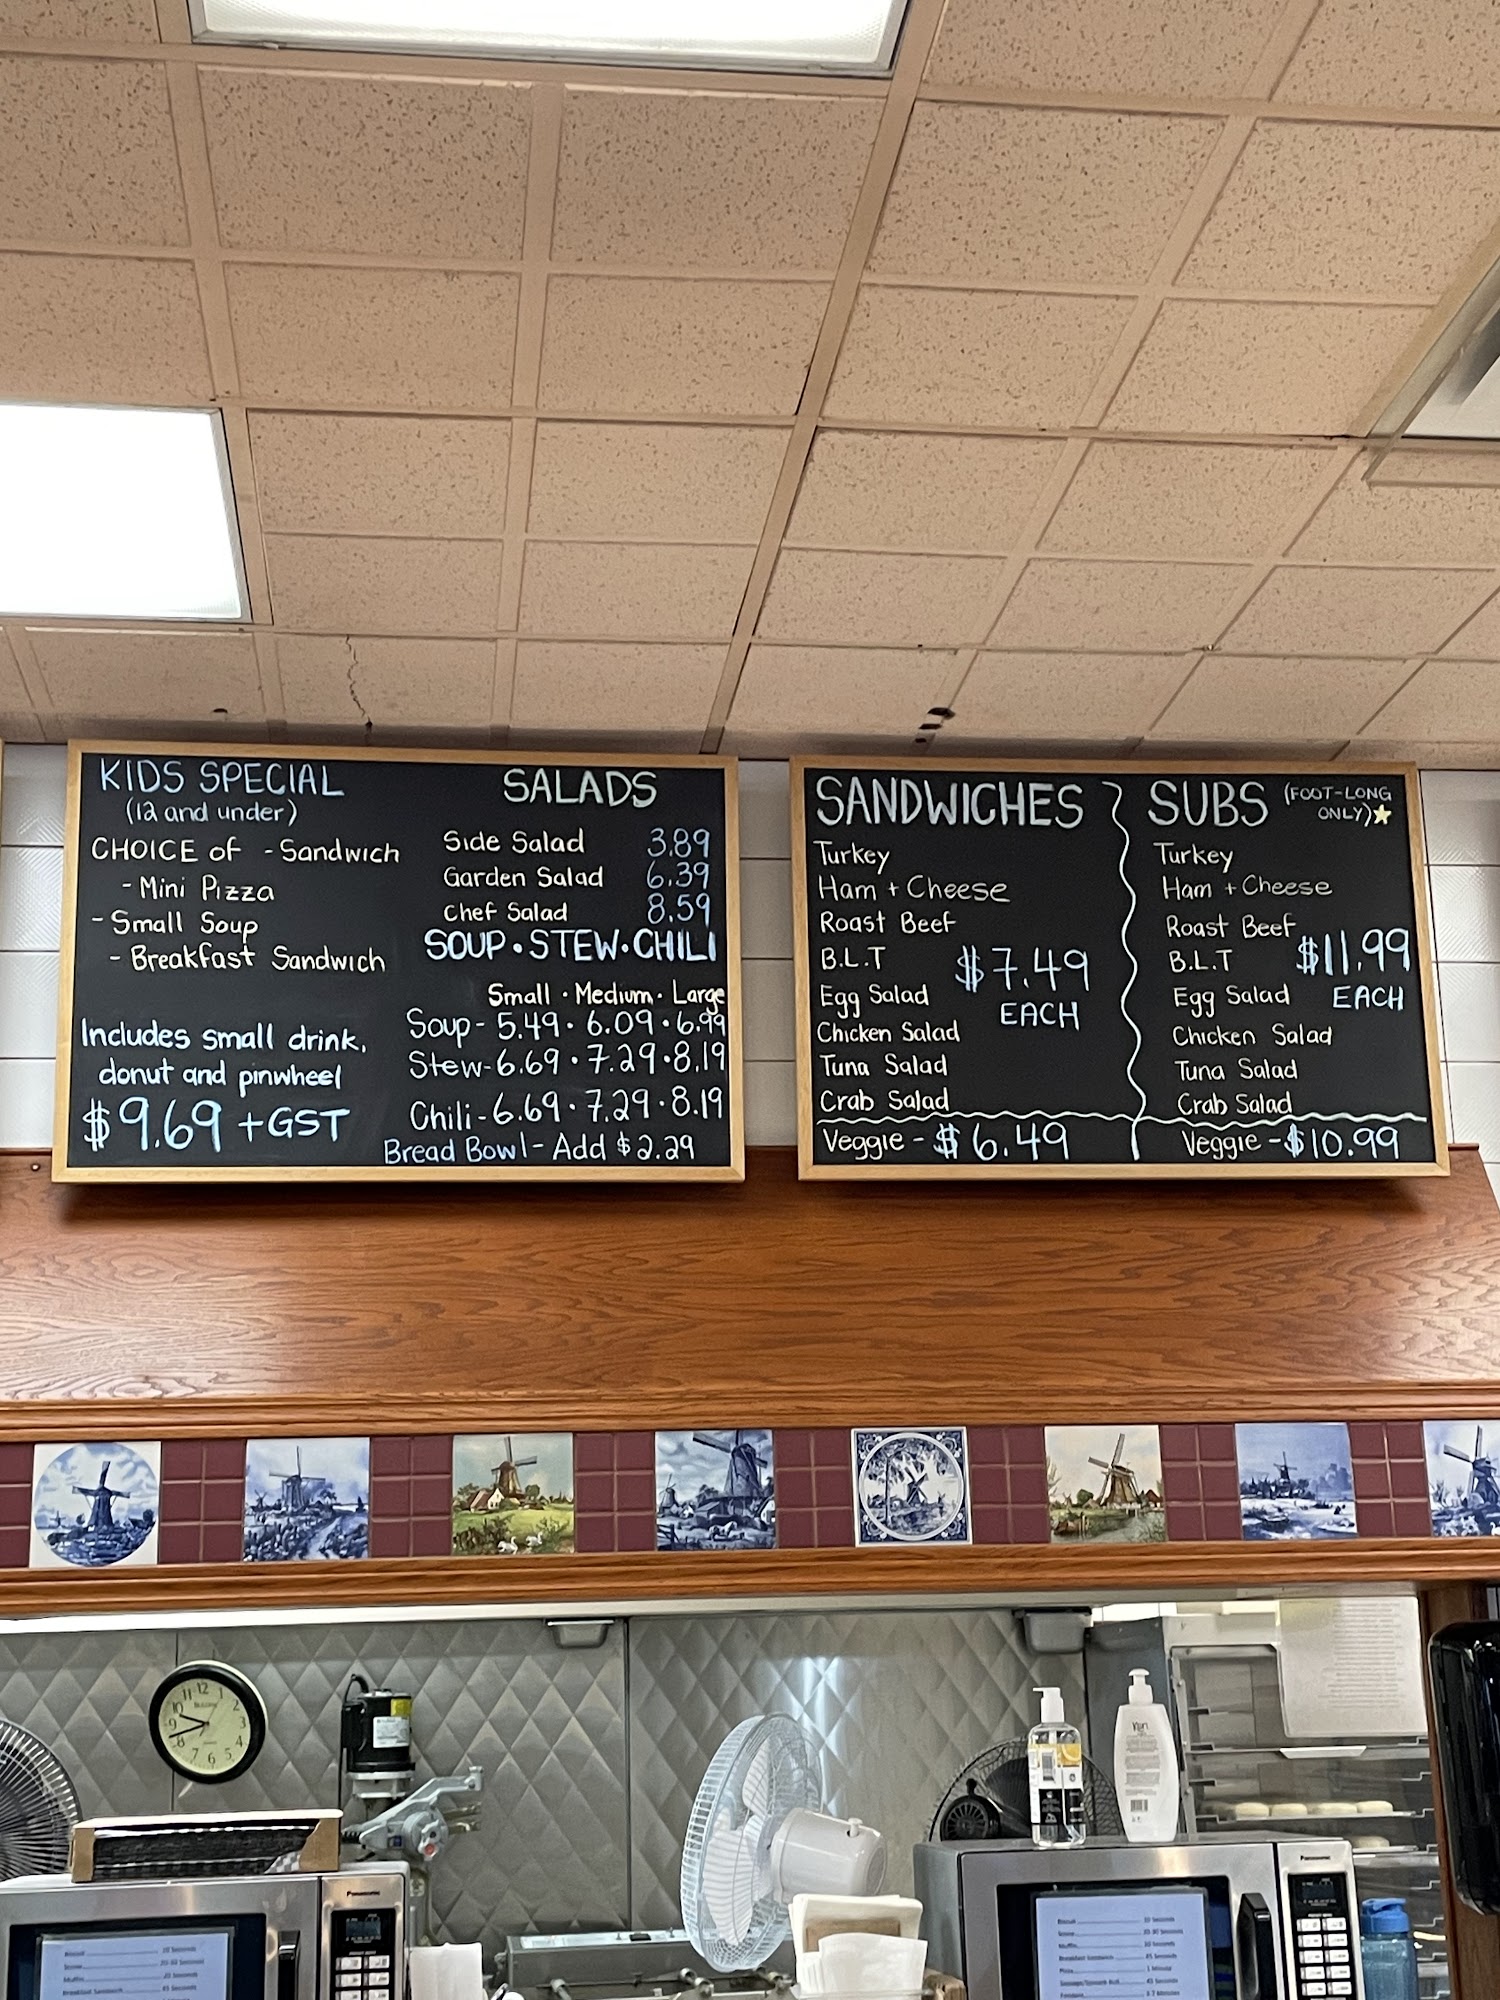 KIDS SPECIAL
(12 and under)
CHOICE of - Sandwich
- Mini Pizza
- Small Soup
- Breakfast Sandwich
Includes small drink,
donut and pinwheel
$9.69 + GST
SALADS
Side Salad 3.89
Garden Salad 6.39
Chef Salad 8.59
SOUP • STEW • CHILI
Small • Medium • Large
Soup - 5.49 • 6.09 • 6.99
Stew - 6.69 • 7.29 • 8.19
Chili - 6.69 • 7.29 • 8.19
Bread Bowl - Add $2.29
SANDWICHES
Turkey
Ham + Cheese
Roast Beef
B.L.T
Egg Salad
Chicken Salad
Tuna Salad
Crab Salad
$7.49
EACH
Veggie - $6.49
SUBS (FOOT-LONG
ONLY)
Turkey
Ham + Cheese
Roast Beef
B.L.T
Egg Salad
Chicken Salad
Tuna Salad
Crab Salad
$11.99
EACH
Veggie - $10.99
11 12 1
10 2
9 3
8 4
7 6 5
Panasonic
Panasonic